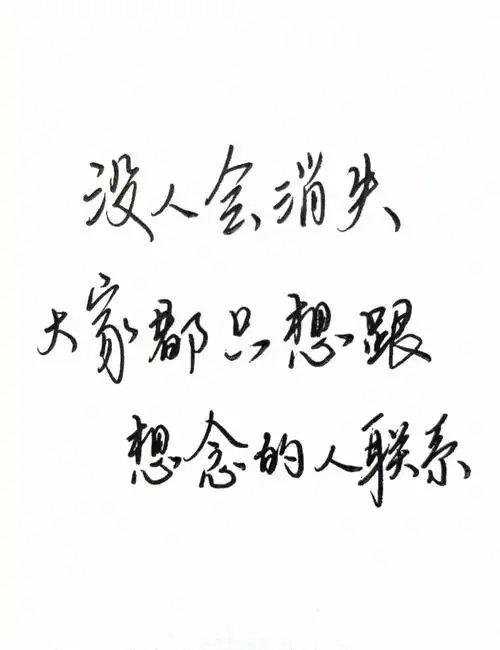 没人会消失
大家都只想跟
想念的人联系